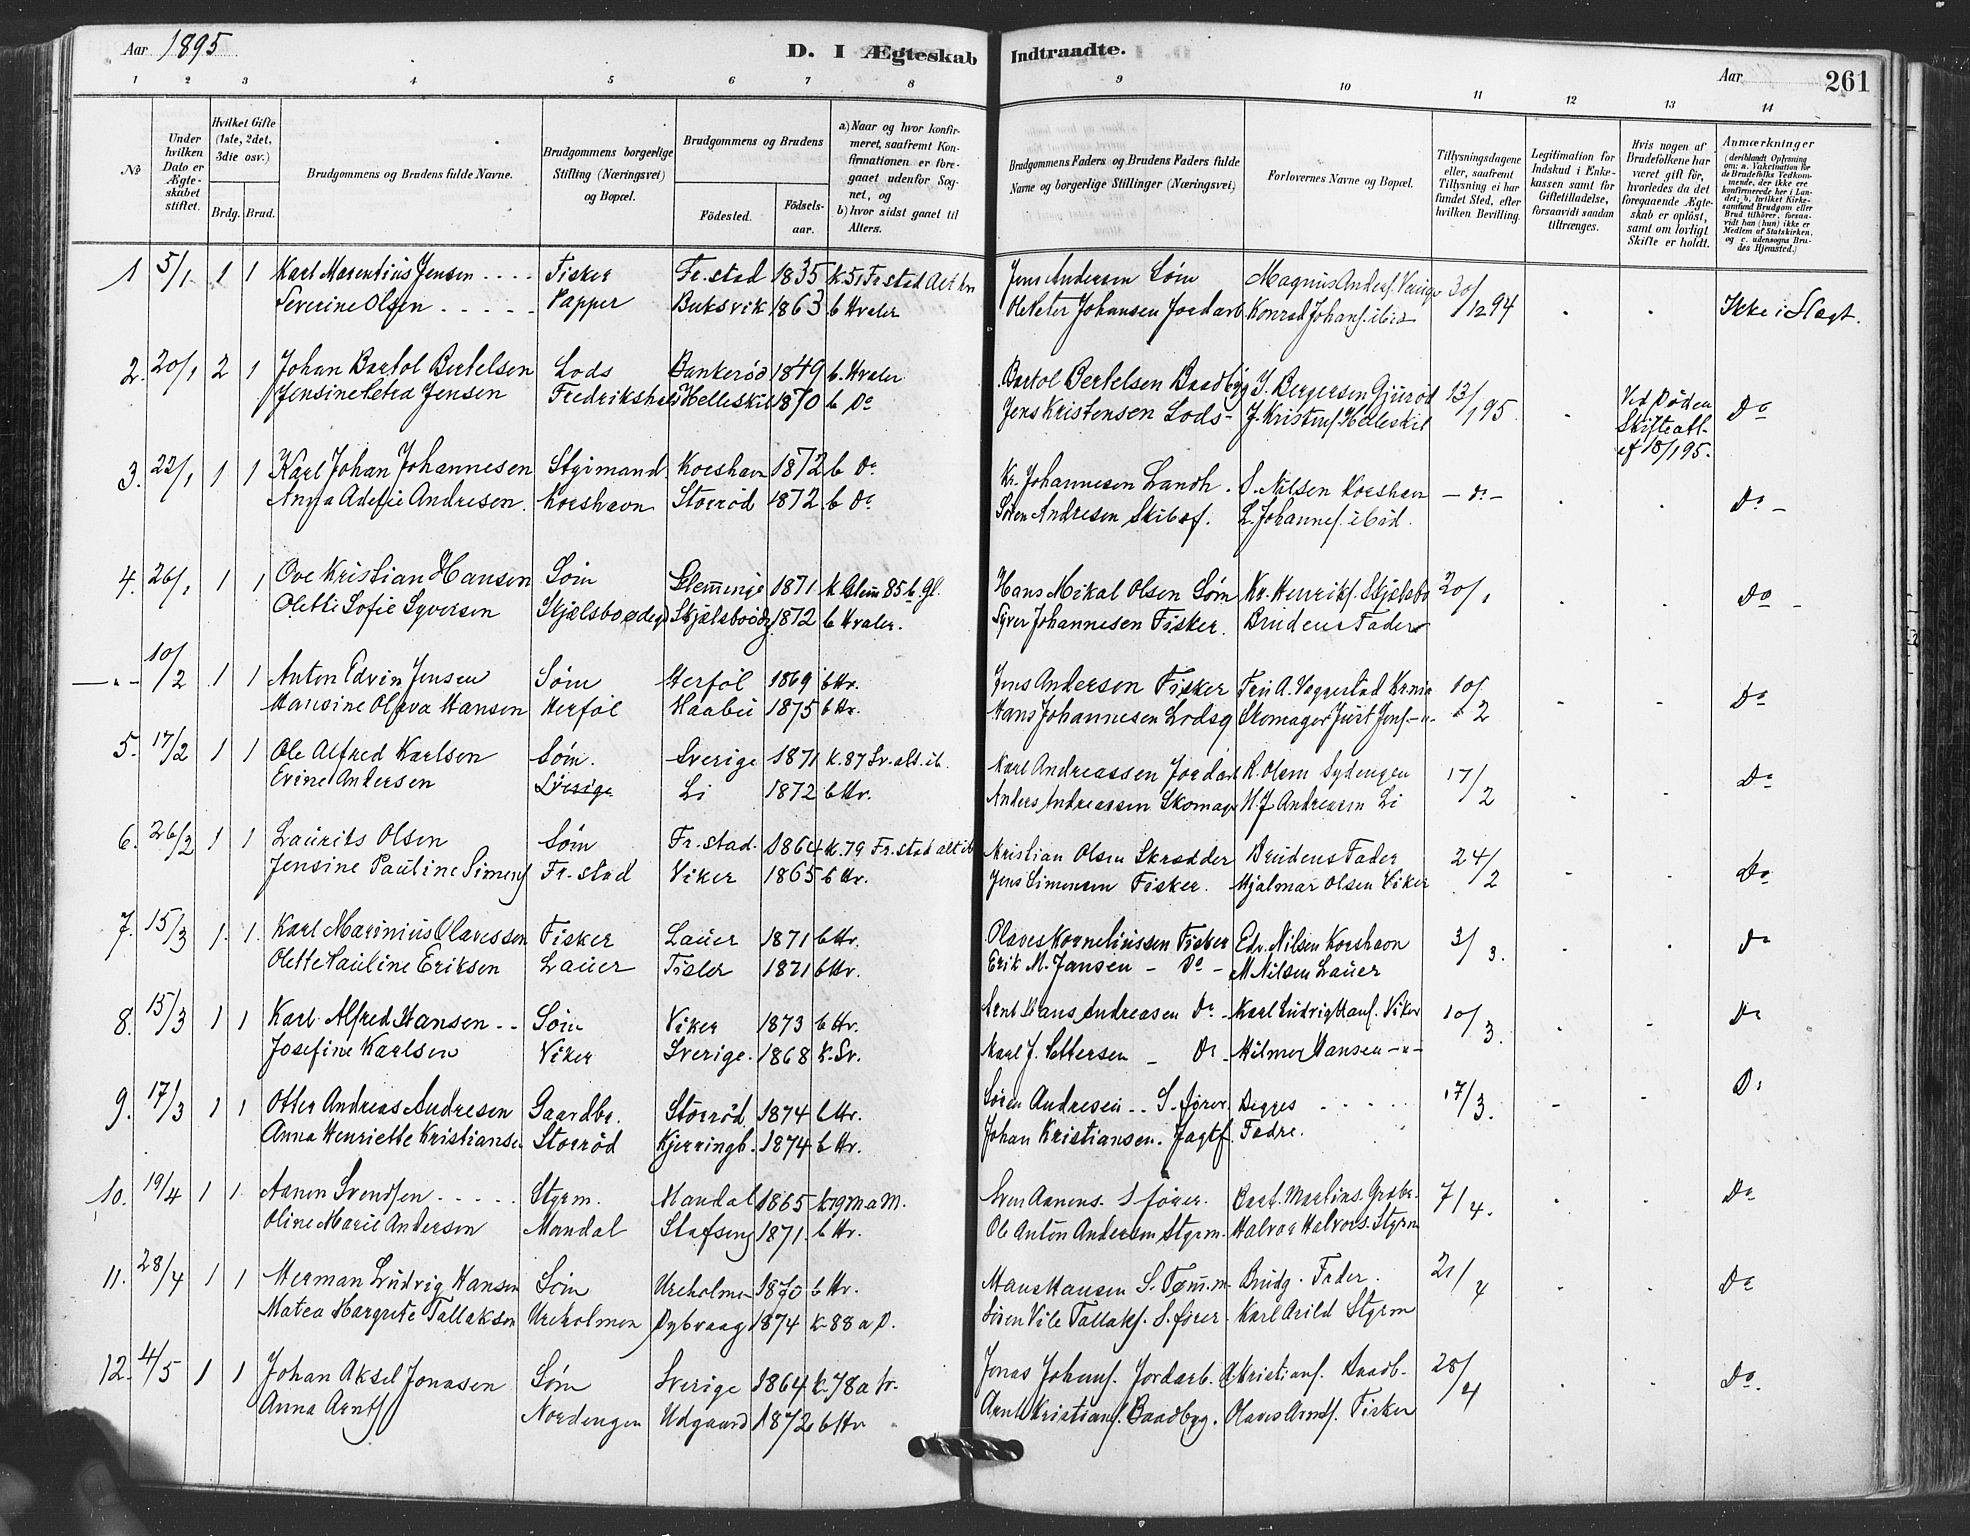 Aar 1895
D. I Ægteskab Indtraadte.
Aar 261
1 2 3 4 5 6 7 8 9 10 11 12 13 14
No
Under hvilken Dato er Ægteskabet stiftet.
Hvilket Gifte (1ste, 2det, 3die osv.)
Brdg. Brud.
Brudgommens og Brudens fulde Navne.
Brudgommens borgerlige Stilling (Næringsvei) og Bopæl.
Brudgommens og Brudens
Födested. Födsels-aar.
a) Naar og hvor konfirmeret, saafremt Konfirmationen er foregaaet udenfor Sognet, og b) hvor sidst gaaet til Alters.
Brudgommens Faders og Brudens Faders fulde Navne og borgerlige Stillinger (Næringsvei)
Forlovernes Navne og Bopæl.
Tillysningsdagene eller, saafremt Tillysning ei har fundet Sted, efter hvilken Bevilling.
Legitimation for Indskud i Enkekassen samt for Giftetilladelse, forsaavidt saadan tiltrænges.
Hvis nogen af Brudefolkene har været gift för, hvorledes da det foregaaende Ægteskab er oplöst, samt om lovligt Skifte er holdt.
Anmærkninger (deriblandt Oplysning om: a. Vakcination for de Brudefolks Vedkommende, der ikke ere konfirmerede her i Landet; b. hvilket Kirkesamfund Brudgom eller Brud tilhörer, forsaavidt han (hun) ikke er Medlem af Statskirken, og c. udensogns Brudes Hjemsted.)
1 5/1 1 1 Karl Marentius Jensen .... Fisker Fr.stad 1835 k.51 Fr.stad Alt hr Jens Andersen Söm Magnus Anders. 30/12 94 Ikke i Slegt.
Severine Olsen ..... Papper Buksvik 1863 b Hvaler Ole Peter Johansen Jordarb Konrad Johans. ibid
2. 20/1 2 1 Johan Bartol Bertelsen Lods Bankeröd 1849 b. Hvaler Bartol Bertelsen Baadbyg J. Bergersen Gjuröd 13/1 95 Ved Döden Skifteatt. af 18/1 95. Do
Jensine Petra Jensen Fredrikshal Helleskil 1870 b Do Jens Kristensen Lods- J. Kristens. Helleskil
3. 22/1 1 1 Karl Johan Johannesen Styrmand Korshavn 1872 b Do Kr. Johannesen Landh. S. Nilsen Korshavn - do - Do -
Anna Adelie Andresen. Korshavn Storröd 1872 b Do Sören Andresen Skibsf. L. Johannes. ibid.
4. 26/1 1 1 Ove Kristian Hansen Söm Glemminge 1871 k. Glem 85 b. Gl. Hans Mikal Olsen Söm Kr. Henriks. Skjelsbo 20/1 Do -
Olette Sofie Syversen Skjælsboödeg Skjælsboödg 1872 b Hvaler. Syver Johannesen Fisker. Brudens Fader
-"- 10/2 1 1 Anton Edvin Jensen Söm Herföl 1869 b Hv. Jens Andersen Fisker Fru A. Veggerstad Krnia 10/2 Do
Hansine Oleva Hansen Herföl Haabu 1875 b Hv. Hans Johannesen Lodsg Skomager Jens.-"-
5. 17/2 1 1 Ole Alfred Karlsen Söm. Sverige 1871 k. 87 Sv. alt. ib. Karl Andreassen Jordarb K. Olsen Sydengen 17/2 Do
Evine Andersen Sverige Li 1872 b Hv. Anders Andreassen Skomag H. J Andreassen Li
6. 26/2 1 1 Laurits Olsen Söm Fr.stad. 1864 k. 79 Fr.stad alt ib Kristian Olsen Skrædder Brudens Fader 24/2 Do
Jensine Pauline Simens Fr.stad Viker 1865 b Hv. Jens Simensen Fisker. Hjalmar Olsen Viker
7. 15/3 1. 1. Karl Marinius Olavessen Fisker Lauer 1871 b Hv. Olaves Korneliussen Fisker Edv. Nilsen Korshavn 3/3. Do
Olette Pauline Eriksen Lauer Tisler 1871 b Hv. Erik M. Jansen - Do - M Nilsen Lauer
8. 15/3 1 1 Karl Alfred Hansen -- Söm Viker 1873 b Hv. Arnt Hans Andreasen Do - Karl Ludvig Hans. Viker 10/3. Do
Josefine Karlsen Viker Sverige. 1868 k. Sv. Karl J. Pettersen - Do - Hilmer Hansen -"-
9. 17/3 1 1 Otter Andreas Andresen Gaardbr. Storröd 1874 b Hv. Sören Andresen .. S. förer. Begges ..... 17/3. Do
Anna Henriette Kristiansen Storröd Kjerringh. 1874 b Hv. Johan Kristiansen. Jagtf. Fadre.
10. 19/4 1 1. Aanen Svendsen ..... Styrm. Mandal 1865 k 79 M a M. Sven Aanens. S förer. Bert. Martins. 7/4. Do
Oline Marie Andersen Mandal Stafseng 1871. b Hv. Ole Anton Andersen Styrm. Halvor Halvors. Styrm
11. 28/4 1 1 Herman Ludvig Hansen Söm Ureholmen 1870 b Hv. Hans Hansen S. Tömm. Brudg. Fader. 21/4 Do
Matea Margrete Tallaksen Ureholmen Dybvaag 1874 k 88 a D. Sören Vile Tallaks. S. förer. Karl Arild Styrm
12. 4/5 1 1 Johan Aksel Jonasen Söm Sverige 1864 k. 78 a Sv. Jonas Johans. Jordarb. Kristians. Baadb. 28/4 Do.
Anna Arnts Nordengen Udgaard 1872 b Hv Arnt Kristians. Baadbyg. Olaves Arnts. Fisker